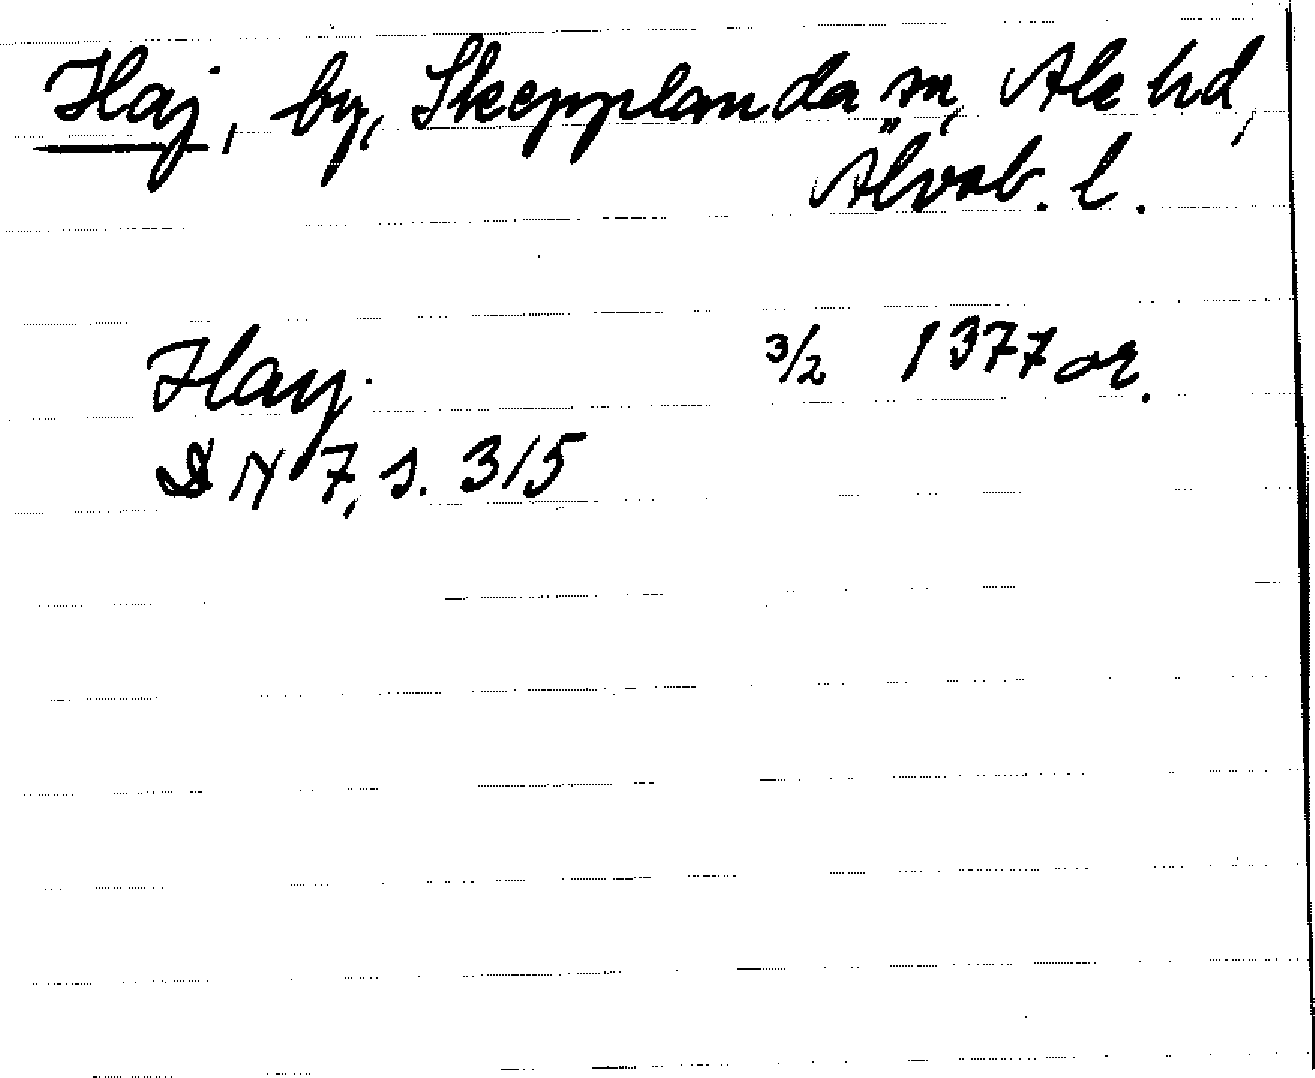 Haj, by, Skepplanda sn, Ale hd,
Älvsb. l.
Hay. 3/2 1377 or.
DN 7, s. 315